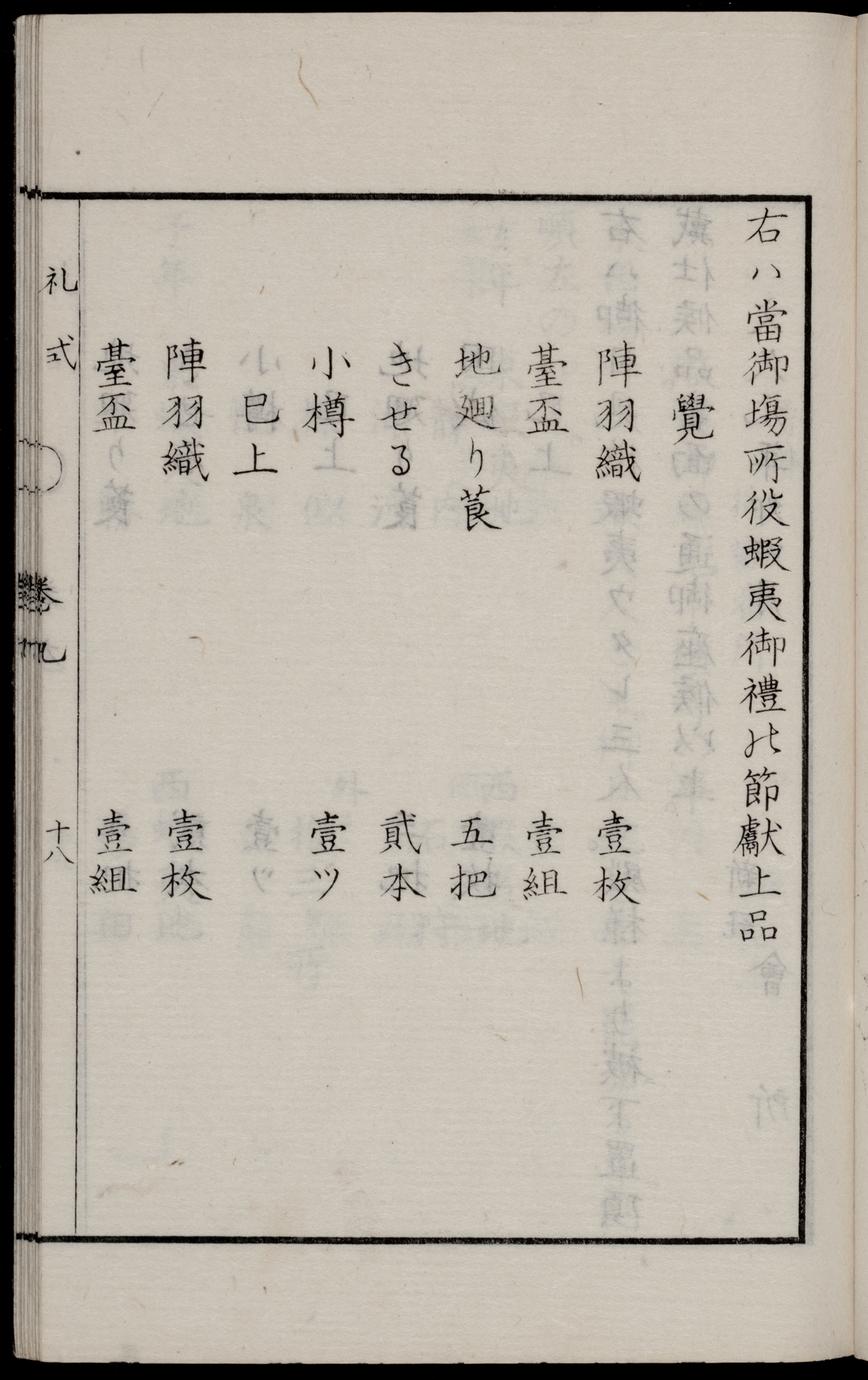 右ハ當御塲所役蝦夷御禮之節獻上品
覺
陣羽織 壹枚
臺盃 壹組
地廻り莨 五把
きせる 貳本
小樽 壹ツ
巳上
陣羽織 壹枚
臺盃 壹組
礼式 卷九 十八